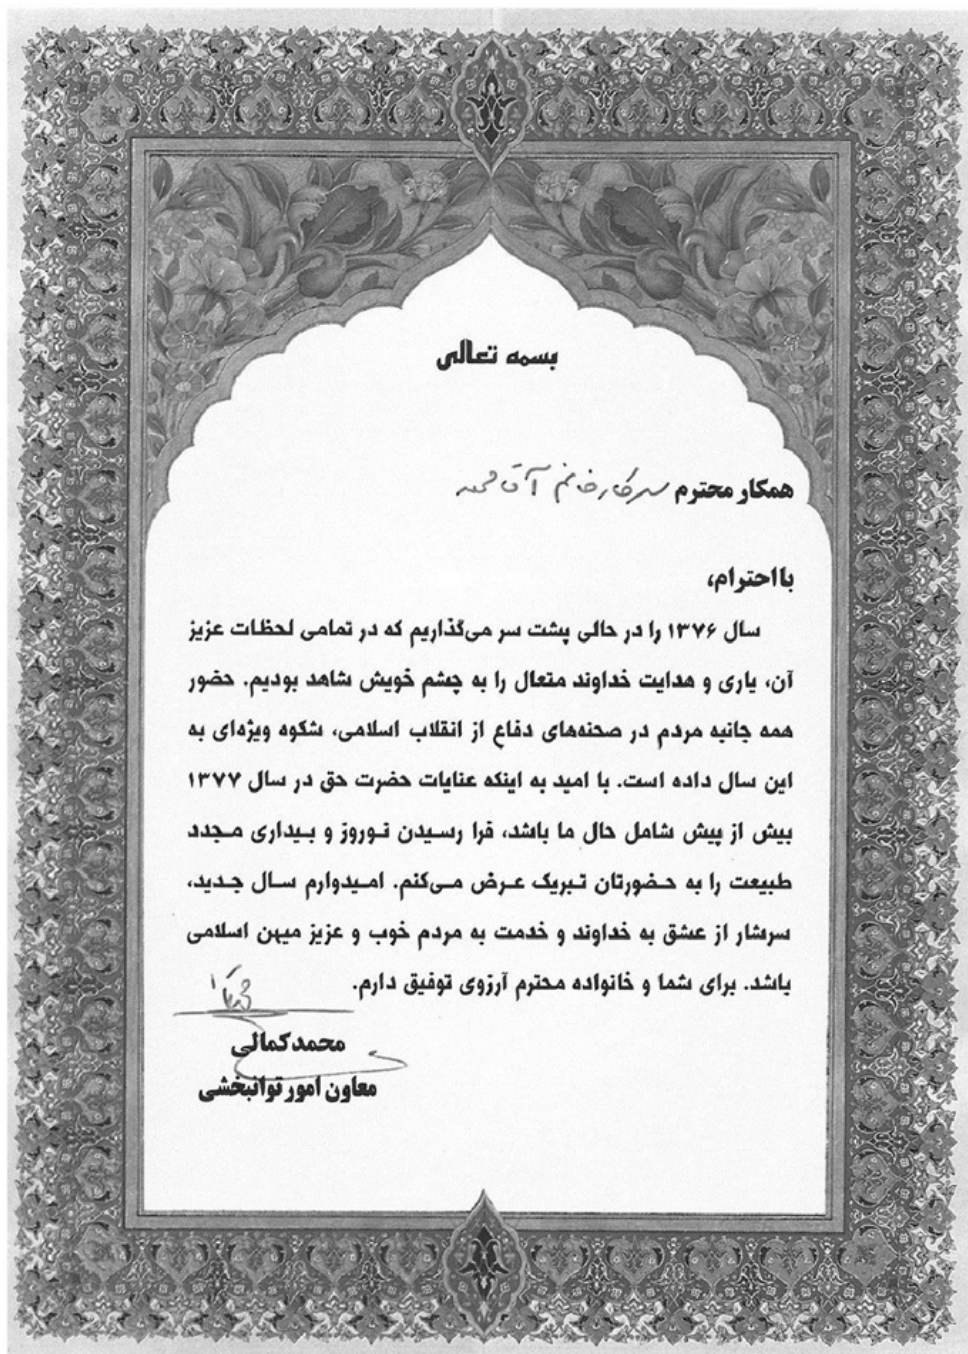 بسمه تعالی
همکار محترم سرکار خانم آقامحمد
بااحترام،
سال ۱۳۷۶ را در حالی پشت سر می‌گذاریم که در تمامی لحظات عزیز
آن، یاری و هدایت خداوند متعال را به چشم خویش شاهد بودیم. حضور
همه جانبه مردم در صحنه‌های دفاع از انقلاب اسلامی، شکوه ویژه‌ای به
این سال داده است. با امید به اینکه عنایات حضرت حق در سال ۱۳۷۷
بیش از پیش شامل حال ما باشد، فرا رسیدن نوروز و بیداری مجدد
طبیعت را به حضورتان تبریک عرض می‌کنم. امیدوارم سال جدید،
سرشار از عشق به خداوند و خدمت به مردم خوب و عزیز میهن اسلامی
باشد. برای شما و خانواده محترم آرزوی توفیق دارم.
محمد کمالی
معاون امور توانبخشی